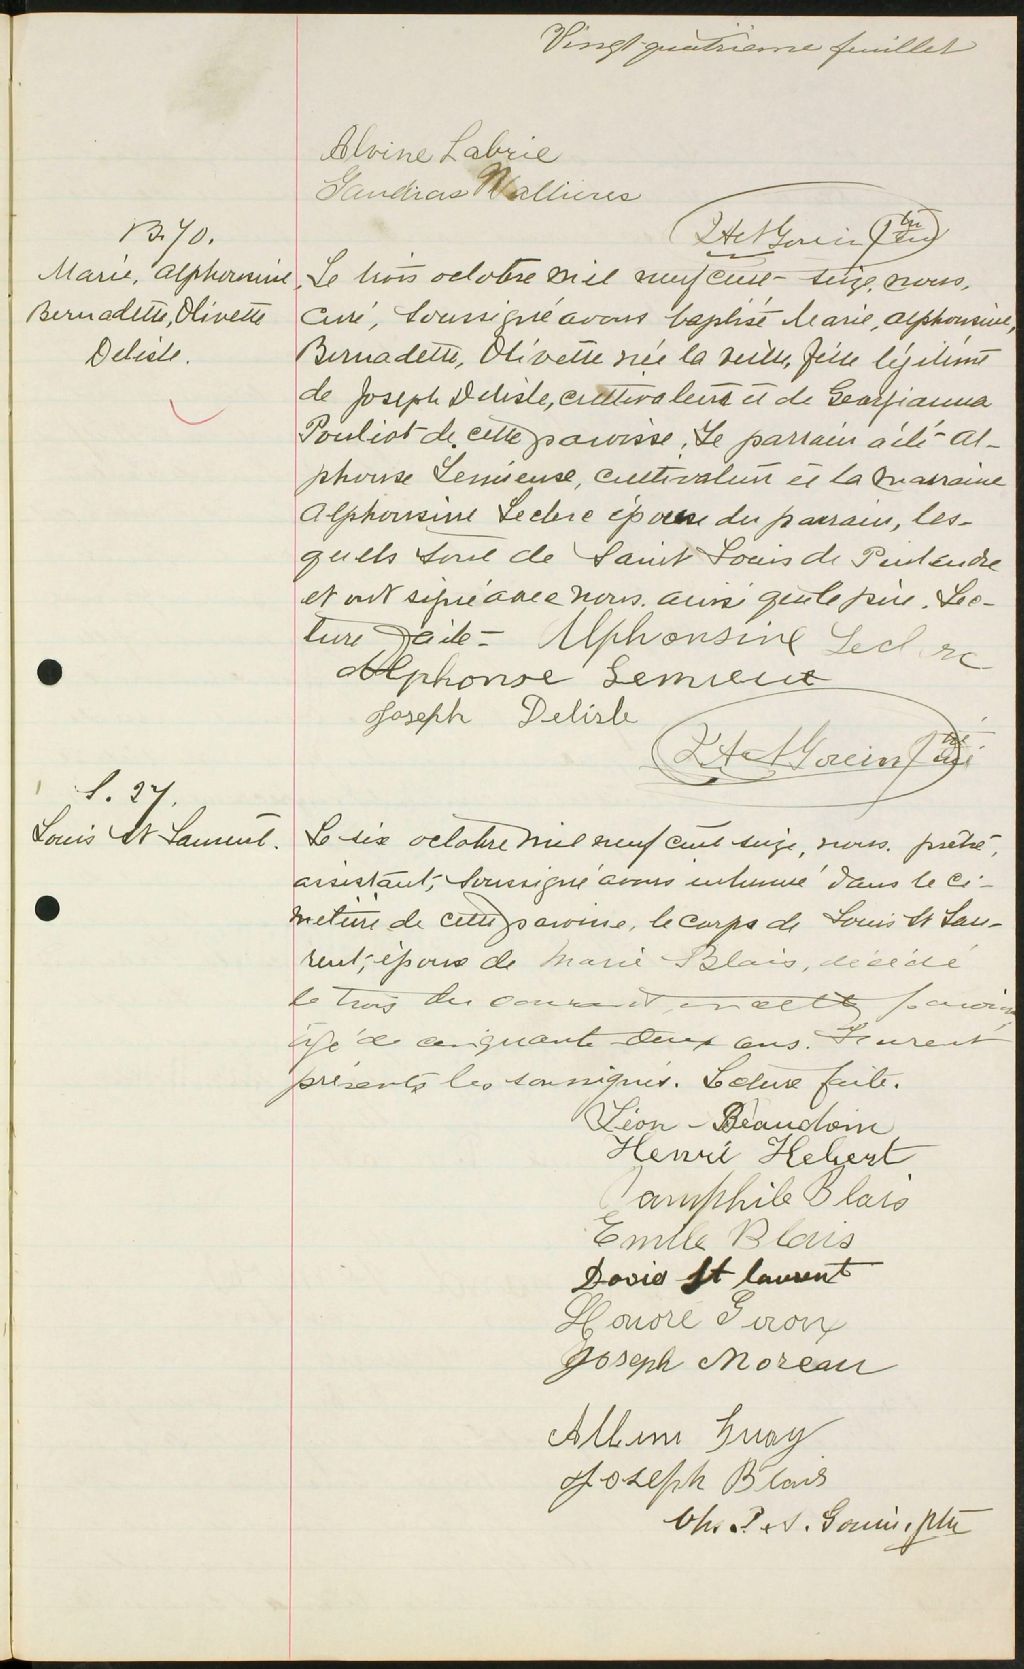 Vingt quatrième feuillet
Alvine Labrie
Gaudias Vallieres
Gouin Ptre
B. 70.
Marie, Alphonsine,
Bernadette, Olivette
Delisle.
Le trois octobre mil neuf cent seize, nous,
curé, soussigné avons baptisé Marie, Alphonsine,
Bernadette, Olivette née la veille, fille légitime
de Joseph Delisle, cultivateur et de Georgianna
Pouliot de cette paroisse. Le parrain a été Al-
phonse Lemieux, cultivateur et la marraine
Alphonsine Leclerc épouse du parrain, les-
quels sont de Saint Louis de Pintendre
et ont signé avec nous ainsi que le père. Lec-
ture faite- Alphonsine Leclerc
Alphonse Lemieux
Joseph Delisle
Gouin Ptre
S. 27.
Louis St Laurent.
Le six octobre mil neuf cent seize, nous, prêtre,
assistant, soussigné avons inhumé dans le ci-
metière de cette paroisse, le corps de Louis St Lau-
rent, époux de Marie Blais, décédé
le trois du courant, en cette paroisse
âgé de cinquante deux ans. Furent
présents les soussignés. Lecture faite.
Léon-Beaudoin
Henri Hebert
Pamphile Blais
Emile Blais
David St laurent
Honoré Giroux
Joseph Moreau
Guay
Joseph Blais
Gouin, ptre